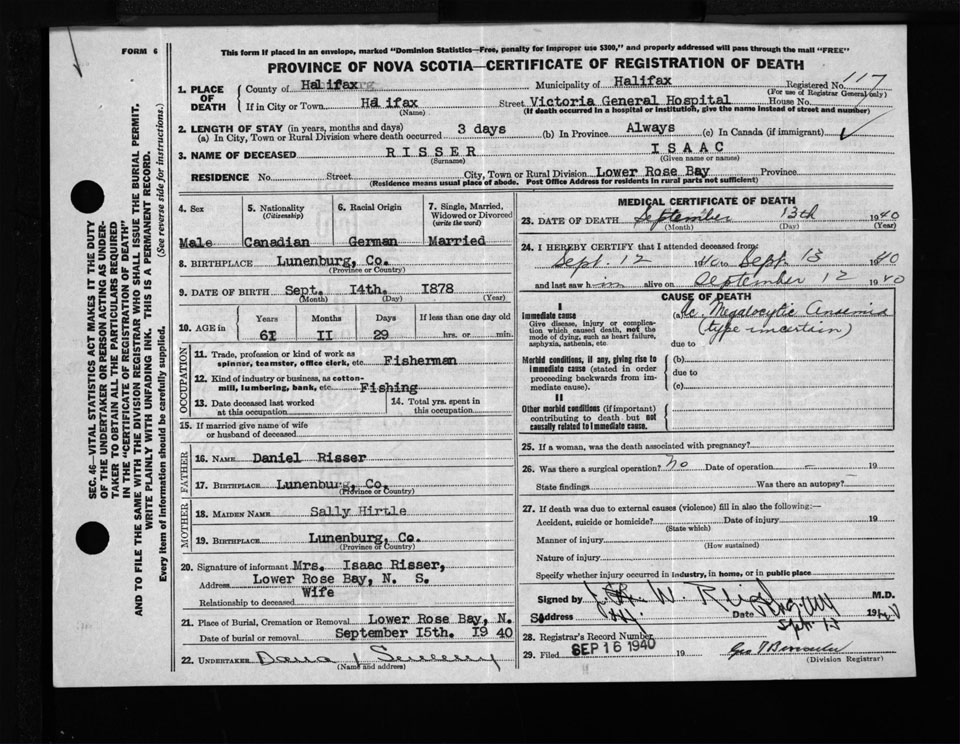 FORM 6
This form if placed in an envelope, marked "Dominion Statistics—Free, penalty for improper use $300," and properly addressed will pass through the mail "FREE"
PROVINCE OF NOVA SCOTIA—CERTIFICATE OF REGISTRATION OF DEATH
SEC. 46—VITAL STATISTICS ACT MAKES IT THE DUTY
OF THE UNDERTAKER OR PERSON ACTING AS UNDER-
TAKER TO OBTAIN ALL THE PARTICULARS REQUIRED
IN THE "CERTIFICATE OF REGISTRATION OF DEATH"
AND TO FILE THE SAME WITH THE DIVISION REGISTRAR WHO SHALL ISSUE THE BURIAL PERMIT.
WRITE PLAINLY WITH UNFADING INK. THIS IS A PERMANENT RECORD.
Every item of information should be carefully supplied. (See reverse side for instructions.)
1. PLACE OF DEATH
County of Halifax Municipality of Halifax Registered No. 117
(For use of Registrar General only)
If in City or Town Halifax Street Victoria General Hospital House No.
(Name) (If death occurred in a hospital or institution, give the name instead of street and number)
2. LENGTH OF STAY (in years, months and days)
(a) In City, Town or Rural Division where death occurred 3 days (b) In Province Always (c) In Canada (if immigrant)
3. NAME OF DECEASED RISSER ISAAC
(Surname) (Given name or names)
RESIDENCE No. Street City, Town or Rural Division Lower Rose Bay Province
(Residence means usual place of abode. Post Office Address for residents in rural parts not sufficient)
4. Sex 5. Nationality (Citizenship) 6. Racial Origin 7. Single, Married, Widowed or Divorced (write the word)
Male Canadian German Married
8. BIRTHPLACE Lunenburg, Co.
(Province or Country)
9. DATE OF BIRTH Sept. 14th. 1878
(Month) (Day) (Year)
10. AGE in Years Months Days If less than one day old
61 11 29 hrs. or min.
OCCUPATION
11. Trade, profession or kind of work as
spinner, teamster, office clerk, etc. Fisherman
12. Kind of industry or business, as cotton-
mill, lumbering, bank, etc. Fishing
13. Date deceased last worked
at this occupation
14. Total yrs. spent in
this occupation
15. If married give name of wife
or husband of deceased
FATHER
16. NAME Daniel Risser
17. BIRTHPLACE Lunenburg, Co.
(Province or Country)
MOTHER
18. MAIDEN NAME Sally Hirtle
19. BIRTHPLACE Lunenburg, Co.
(Province or Country)
20. Signature of informant Mrs. Isaac Risser,
Address Lower Rose Bay, N. S.
Relationship to deceased Wife
21. Place of Burial, Cremation or Removal Lower Rose Bay, N. S
Date of burial or removal September 15th. 1940
22. UNDERTAKER
(Name and address)
MEDICAL CERTIFICATE OF DEATH
23. DATE OF DEATH September 13th 1940
(Month) (Day) (Year)
24. I HEREBY CERTIFY that I attended deceased from:
Sept. 12 1940 to Sept. 13 1940
and last saw him alive on September 12 1940
CAUSE OF DEATH
I
Immediate cause
Give disease, injury or complica-
tion which caused death, not the
mode of dying, such as heart failure,
asphyxia, asthenia, etc.
(a) Megalocytic Anaemia
(type uncertain)
due to
Morbid conditions, if any, giving rise to
immediate cause (stated in order
proceeding backwards from im-
mediate cause).
(b)
due to
(c)
II
Other morbid conditions (if important)
contributing to death but not
causally related to immediate cause.
25. If a woman, was the death associated with pregnancy?
26. Was there a surgical operation? no Date of operation — 19
State findings Was there an autopsy?
27. If death was due to external causes (violence) fill in also the following:—
Accident, suicide or homicide? Date of injury 19
(State which)
Manner of injury
(How sustained)
Nature of injury
Specify whether injury occurred in industry, in home, or in public place
Signed by M.D.
Address Date Sept. 13 1940
28. Registrar's Record Number
29. Filed SEP 16 1940 19
(Division Registrar)